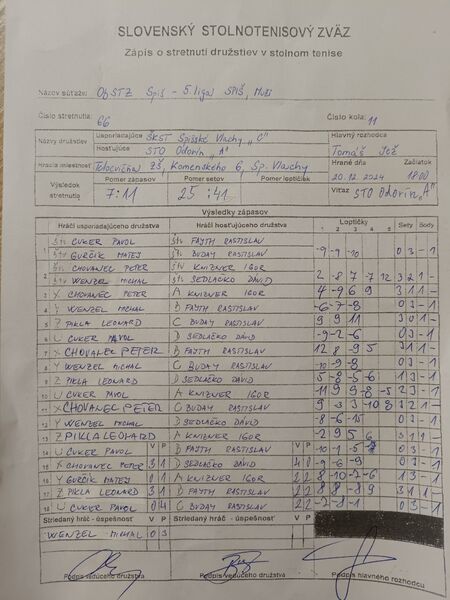 SLOVENSKÝ STOLNOTENISOVÝ ZVÄZ
Zápis o stretnutí družstiev v stolnom tenise
Názov súťaže: ObSTZ Spiš - 5. liga SPIŠ, MUŽI
Číslo stretnutia: 66 Číslo kola: 11
Názvy družstiev Usporiadajúce ŠKST Spišské Vlachy "C" Hlavný rozhodca
Hosťujúce STO Odorín "A" Tomáš
Hracia miestnosť Telocvičňa ZŠ, Komenského 6, Sp. Vlachy Hrané dňa Začiatok
20.12.2024 18:00
Výsledok stretnutia Pomer zápasov Pomer setov Pomer loptičiek Víťaz
7:11 25:41 STO Odorín "A"
Výsledky zápasov
Hráči usporiadajúceho družstva Hráči hosťujúceho družstva Loptičky Sety Body
1 2 3 4 5
1 Štv CUKER PAVOL Štv FAJTH RASTISLAV
Štv GURČÍK MATEJ Štv BUDAY RASTISLAV -9 -9 -10 0 3 - 1
2 Štv CHOVANEC PETER Štv KNIZNER IGOR
Štv WENZEL MICHAL Štv SEDLAČKO DÁVID 2 -8 7 -7 12 3 2 1 -
3 X CHOVANEC PETER A KNIZNER IGOR 4 -9 6 9 3 1 1 -
4 Y WENZEL MICHAL B FAJTH RASTISLAV -6 -7 -8 0 3 - 1
5 Z PIKLA LEONARD C BUDAY RASTISLAV 9 9 11 3 0 1 -
6 U CUKER PAVOL D SEDLAČKO DÁVID -9 -2 -6 0 3 - 1
7 X CHOVANEC PETER B FAJTH RASTISLAV 12 8 9 5 3 1 1 -
8 Y WENZEL MICHAL C BUDAY RASTISLAV -10 -9 -8 0 3 - 1
9 Z PIKLA LEONARD D SEDLAČKO DÁVID 5 -8 -5 -6 1 3 - 1
10 U CUKER PAVOL A KNIZNER IGOR 11 9 9 -8 -5 2 3 - 1
11 X CHOVANEC PETER C BUDAY RASTISLAV 9 -3 3 -10 8 3 2 1 -
12 Y WENZEL MICHAL D SEDLAČKO DÁVID -8 -6 -15 0 3 - 1
13 Z PIKLA LEONARD A KNIZNER IGOR -2 9 5 6 3 1 1 -
14 U CUKER PAVOL V P B FAJTH RASTISLAV V P -10 -1 -5 0 3 - 1
15 X CHOVANEC PETER 3 1 D SEDLAČKO DÁVID 4 0 -9 -6 -9 0 3 - 1
16 Y GURČÍK MATEJ 0 1 A KNIZNER IGOR 2 2 8 -10 -7 -6 1 3 - 1
17 Z PIKLA LEONARD 3 1 B FAJTH RASTISLAV 2 2 8 8 -8 9 3 1 1 -
18 U CUKER PAVOL 0 4 C BUDAY RASTISLAV 2 2 -2 -8 -1 0 3 - 1
Striedaný hráč - úspešnosť V P Striedaný hráč - úspešnosť V P
WENZEL MICHAL 0 3
Podpis vedúceho družstva Podpis vedúceho družstva Podpis hlavného rozhodcu